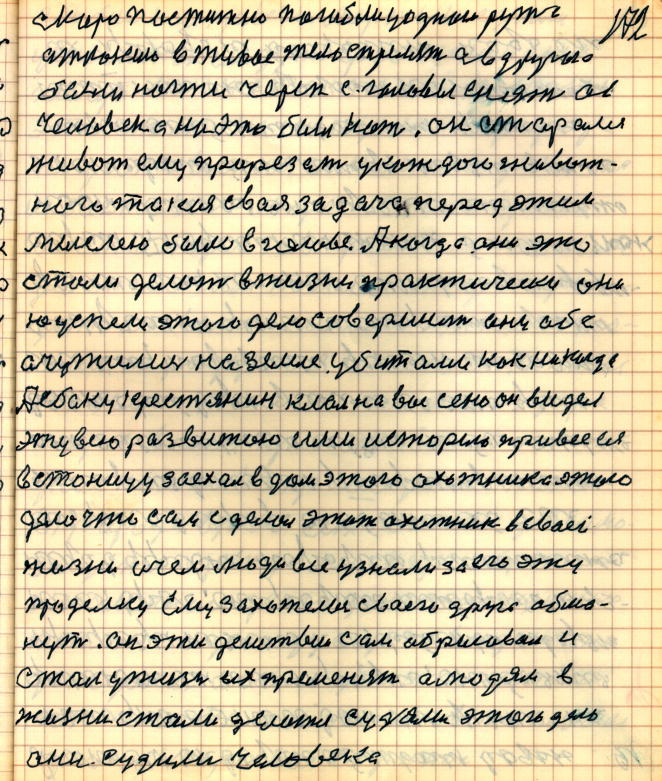 скоро постигно погибли у одном рупе
172
атрокою в живое тело стрелят а в другого
были ногти череп с головы снят ов
человека ни это был нож. он старался
живот ему прорезат у каждого живот-
ного такая своя задача перед этим
мислею было в голове. А когда они это
стали делат в жизни практически они
ю успели этого дело совершит они оба
очутились на земле убитыми как никогда
А сбоку крестянин клал на воз сено он видел
эту всю развитою ими историю привёся
в стоницу заехал в дом этого охотника этого
дело что сам сделал этот охотник в своеі
жизни о чем люди все узнали за его эту
проделку Ему захотелос своего друга обма-
нут. он эти действии сам обрисовал и
стал у жизн их пременят а людям в
жизни стали делатся судями этого дела
они. судили человека